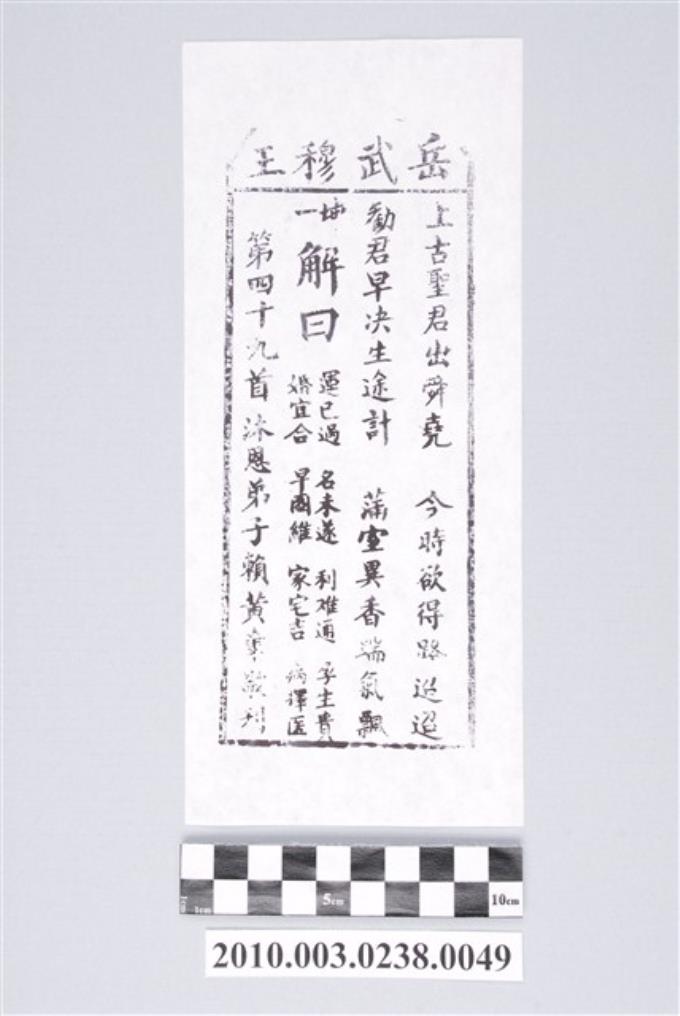 岳武穆王
上古聖君出舜堯 今時欲得路迢迢
勸君早决生途計 蒲室異香瑞氣飄
坤一
解曰
運已過 名未遂 利难通 孕生貴
婚宜合 早圖維 家宅吉 病擇医
第四十九首 沐恩弟子賴黃 敬刊
5cm
10cm
1cm
2010.003.0238.0049